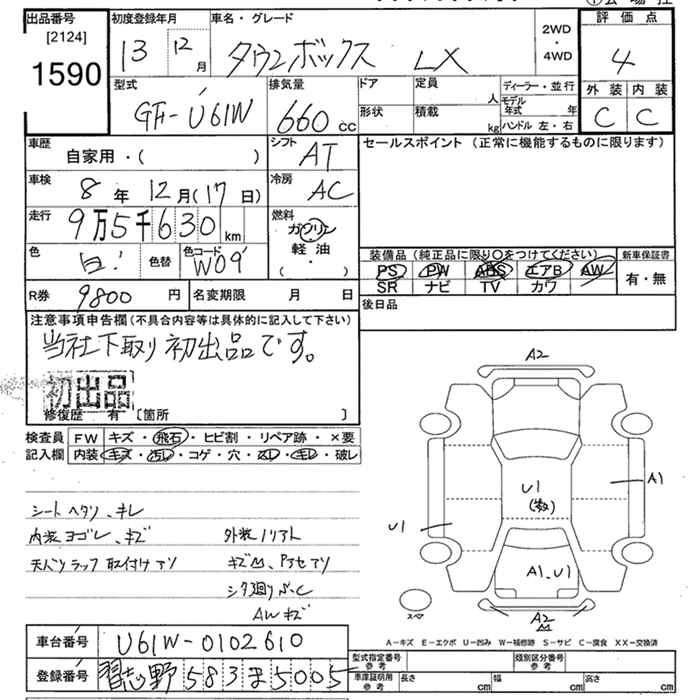 出品番号
[2124]
1590
初度登録年月
13 12月
車名・グレード
タウンボックス LX
2WD
・
4WD
評価点
4
外装 内装
C C
型式
GF-U61W
排気量
660cc
ドア
形状
定員
人
積載
kg
ディーラー・並行
モデル年式 年
ハンドル 左・右
車歴
自家用・( )
シフト
AT
車検
8年 12月(17日)
冷房
AC
走行
9万5千630km
燃料
ガソリン
軽油
( ・ )
色
白
色替
色コード
W09
R券
9800円
名変期限 月 日
セールスポイント (正常に機能するものに限ります)
装備品 (純正品に限り○をつけてください)
PS PW ABS エアB AW
SR ナビ TV カワ
新車保証書
有・無
後日品
注意事項申告欄(不具合内容等は具体的に記入して下さい)
当社下取り初出品です。
初出品
修復歴 有 [箇所 ]
検査員
記入欄
FW キズ・飛石・ヒビ割・リペア跡・×要
内装 キズ・汚レ・コゲ・穴・スレ・キレ・破レ
シートヘタリ、キレ
内装ヨゴレ、キズ
天井ラック取付けアリ
A2
A1
U1
U1
A1.U1
A2
スペア
AWキズ
A-キズ E-エクボ U-凹み W-補修跡 S-サビ C-腐食 XX-交換済
車台番号
U61W-0102610
登録番号
習志野583ま5005
型式指定番号
参考
類別区分番号
参考
車庫証明用
参考
長さ cm
幅 cm
高さ cm